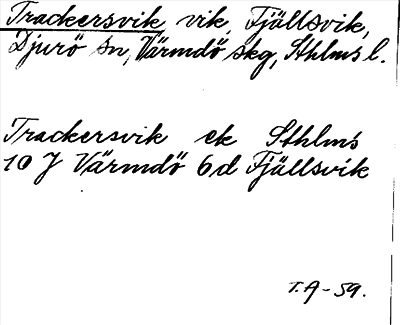 Trackersvik vik, Fjällsvik,
Djurö sn, Värmdö skg, Sthlms l.
Trackersvik ek Sthlms
10 J Värmdö 6d Fjällsvik
T.A-59.